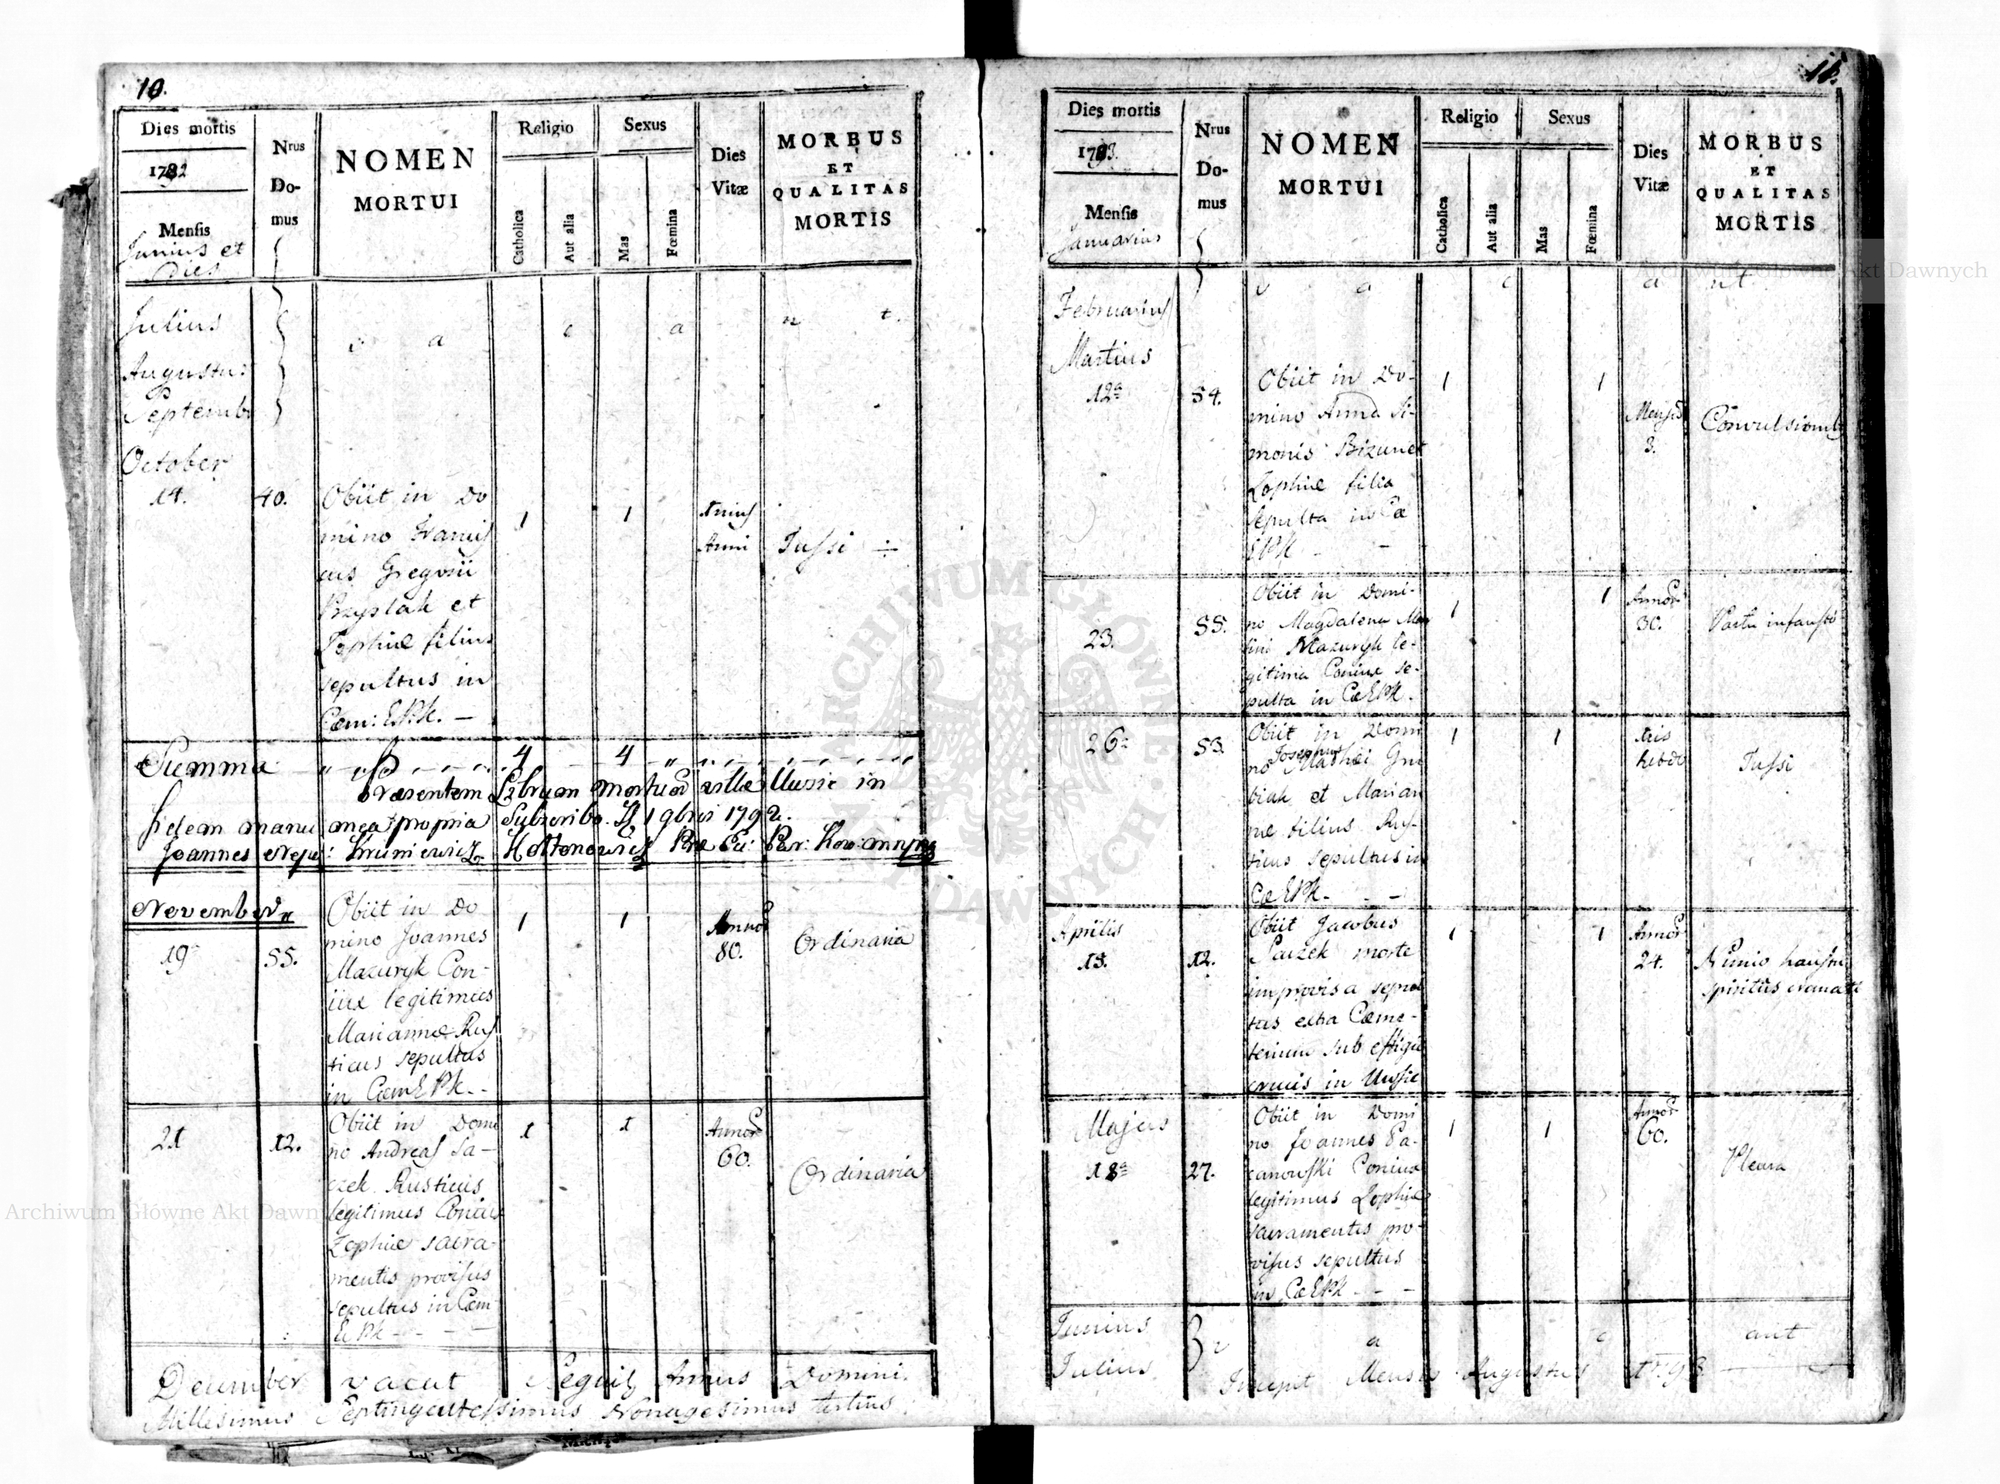 10.
Dies mortis
1792
Mensis
Junius et
Dies
Nrus
Do-
mus
NOMEN
MORTUI
Religio
Catholica
Aut alia
Sexus
Mas
Fœmina
Dies
Vitæ
MORBUS
ET
QUALITAS
MORTIS
Julius
v a c a n t.
Augustus
Septemb
October
14. 40.
Obiit in Do
mino Francis
cus Gregorii
Przystak et
Sophiæ filius
sepultus in
Cœm: E.P.K. —
1 1
Unius
Anni
Tussi ÷
Summa 4 4
Præsentem Librum mortuor villæ Uussie in
fidem manu mea propria Subscribo. D 1 9bris 1792.
Joannes Nepo: Kruniewicz Hottonowicz
November
19 55.
Obiit in Do
mino Joannes
Mazuryk Con-
iux legitimus
Mariannæ Rus
ticus sepultus
in Cœm E P K. -
1 1
Annor
80.
Ordinaria
21 12.
Obiit in Domi
no Andreas Sa-
czek Rusticus
legitimus Coniux
Zophiæ sacra-
mentis provisus
sepultus in Cœm
E P K - - - -
1 1
Annor
60.
Ordinaria
December vacat Sequit Annus Domini
Millesimus Septingentessimus Nonagesimus tertius.
11.
Dies mortis
1793.
Mensis
Januarius
Nrus
Do-
mus
NOMEN
MORTUI
Religio
Catholica
Aut alia
Sexus
Mas
Fœmina
Dies
Vitæ
MORBUS
ET
QUALITAS
MORTIS
Februarius
v a c a nt.
Martius
12a 54.
Obiit in Do-
mino Anna Si-
monis Bizunet
Zophiæ filia
sepulta in Cœ
E P K - -
1 1
Mensiu
3.
Convulsionib
23. 55.
Obiit in Domi-
no Magdalena Mar
tini Mazuryk le-
gitima Coniux se-
pulta in Cœ E P K.
1 1
Annor
30.
Partu infausto
26a 53.
Obiit in Domi
Josephus
no Mathei Gru
biak et Marian
næ filius Rus-
ticus sepultus in
Cœ E P K. - -
1 1
hebdo
Tussi
Aprilis
15. 12.
Obiit Jacobus
Saczek morte
improvisa sepul
tus extra Cœme-
terium sub effigie
crucis in Uussie
1 1
Annor
24.
Nimio haustu
spiritus cremati
Majus
18a 27.
Obiit in Domi
no Joannes Pa-
canowski Coniux
legitimus Zophiæ
sacramentis pro-
visus sepultus
in Cœ E P K - - -
1 1
Annor
60.
Pleura
Junius
v a c ant
Julius
Incipit Mensis Augustus
Archiwum Główne Akt Dawnych
Archiwum Główne Akt Dawnych
ARCHIWUM GŁÓWNE AKT DAWNYCH